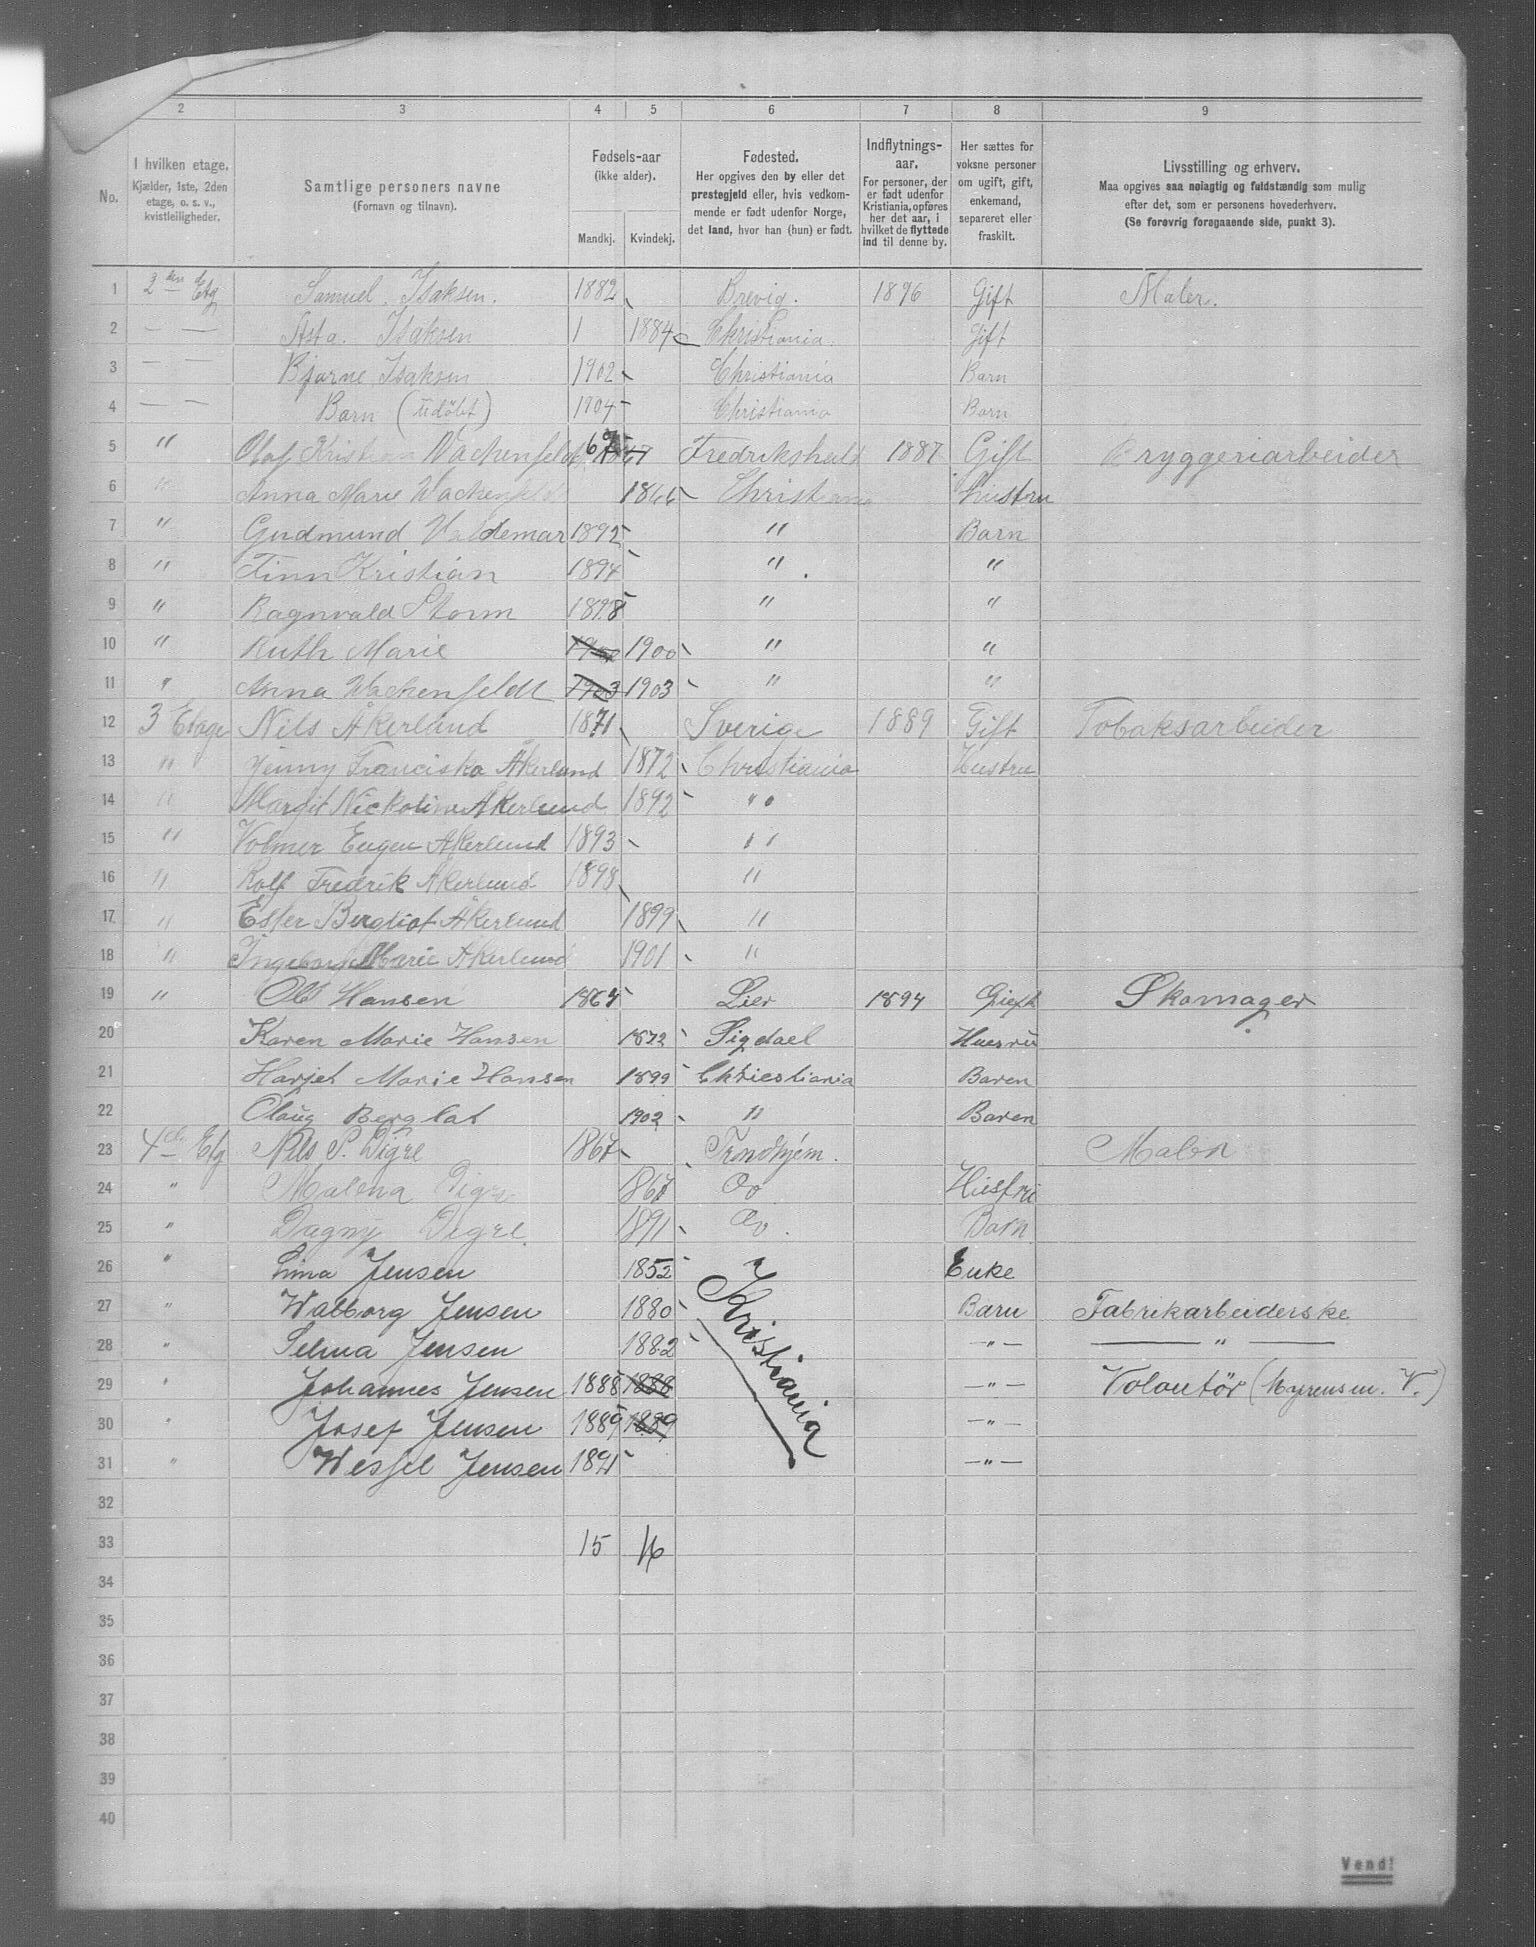 2 3 4 5 6 7 8 9
No.
I hvilken etage.
Kjælder, 1ste, 2den
etage, o. s. v.,
kvistleiligheder.
Samtlige personers navne
(Fornavn og tilnavn).
Fødsels-aar
(ikke alder).
Mandkj. Kvindekj.
Fødested.
Her opgives den by eller det
prestegjeld eller, hvis vedkom-
mende er født udenfor Norge,
det land, hvor han (hun) er født.
Indflytnings-
aar.
For personer, der
er født udenfor
Kristiania, opføres
her det aar, i
hvilket de flyttede
ind til denne by.
Her sættes for
voksne personer
om ugift, gift,
enkemand,
separeret eller
fraskilt.
Livsstilling og erhverv.
Maa opgives saa nøiagtig og fuldstændig som mulig
efter det, som er personens hovederhverv.
(Se forøvrig foregaaende side, punkt 3).
1 2den Etg Samuel Isaksen. 1882 Brevig. 1896 Gift Maler.
2 — — Asta. Isaksen 1 1884 Christiania. Gift
3 — — Bjarne Isaksen 1902 Christiania Barn
4 — — Barn (Udöbt) 1904 Christiania Barn
5 " Olaf Kristian Wachenfeldt 67 Fredrikshald 1887 Gift Bryggeriarbeider
6 " Anna Marie Wachenfeldt 1866 Christiania Hustru
7 " Gudmund Valdemar 1892 " Barn
8 " Finn Kristian 1894 " "
9 " Ragnvald Storm 1898 " "
10 " Ruth Marie 1900 " "
11 " Anna Wachenfeldt 1903 1903 " "
12 3 Etage Nils Åkerlund 1871 Sverige 1889 Gift Tobaksarbeider
13 " Jenny Franciska Åkerlund 1872 Christiania Hustru
14 " Margit Nickoline Åkerlund 1892 "
15 " Volmer Eugen Åkerlund 1893 "
16 " Rolf Fredrik Åkerlund 1898 "
17 " Ester Bergliot Åkerlund 1899 "
18 " Ingeborg Marie Åkerlund 1901 "
19 " Ole Hansen 1865 Lier 1894 Gieft Skomager
20 Karen Marie Hansen 1872 Sigdael Huesru
21 Harjet Marie Hansen 1899 Chriestiania Baren
22 Olaug Berglat 1902 " Baren
23 4de Etg Nils P. Digre 1867 Trondhjem. Maler
24 " Malena Digre 1867 Do Hustru
25 " Dagny Digre 1891 Do. Barn
26 " Lina Jensen 1852 Kristiania Enke
27 " Walborg Jensen 1880 Barn Fabrikarbeiderske
28 " Selma Jensen 1882 — " — — " —
29 " Johannes Jensen 1888 1888 — " — Volontör (Myrens m. V.)
30 " Josef Jensen 1889 1889 — " —
31 " Wessel Jensen 1891 — " —
32
33 15 16
34
35
36
37
38
39
40
Vend!